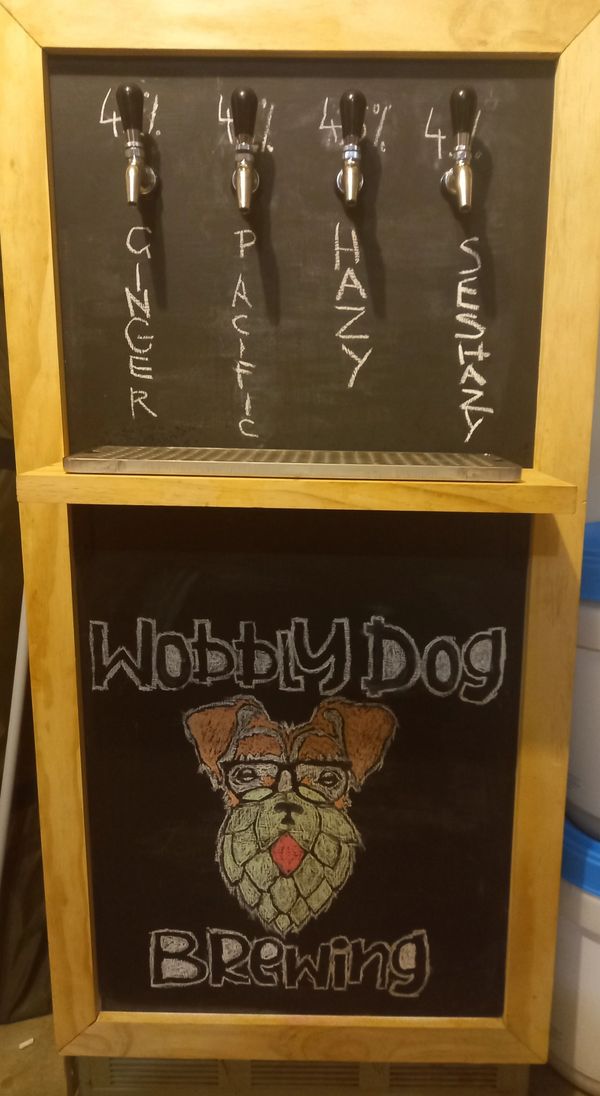 GINGER
PACIFIC
HAZY
SESHAZY
WobbLy Dog
BRewing